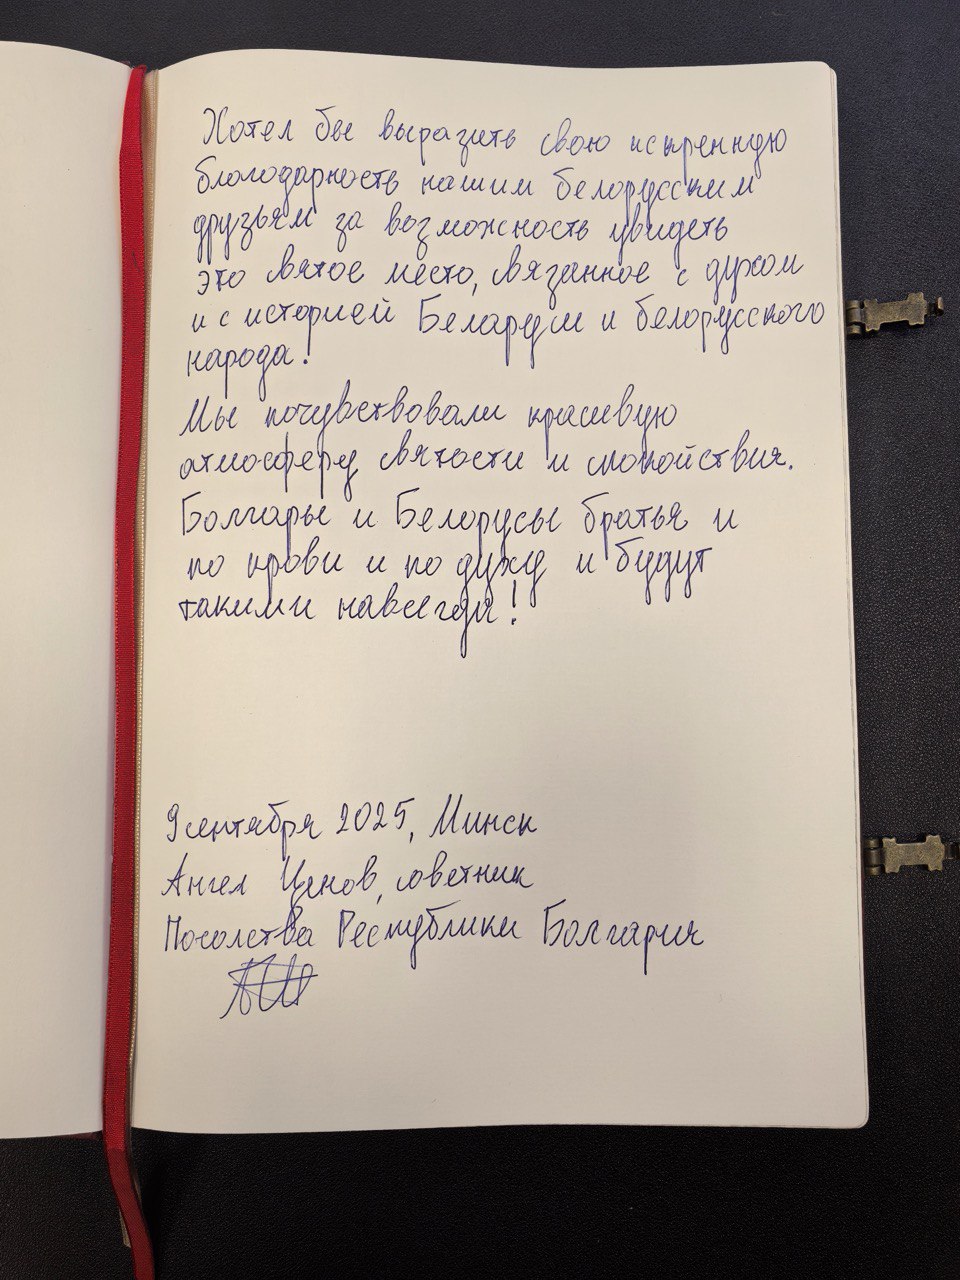 Хотел бы выразить свою искренную
благодарность нашим белорусским
друзьям за возможность увидеть
это святое место, связанное с духом
и с историей Беларуси и белорусского
народа!
Мы почувствовали красивую
атмосферу святости и спокойствия.
Болгары и Белорусы братья и
по крови и по духу и будут
такими навсегда!
9 сентября 2025, Минск
Ангел Ценов, советник
Посолства Республики Болгария